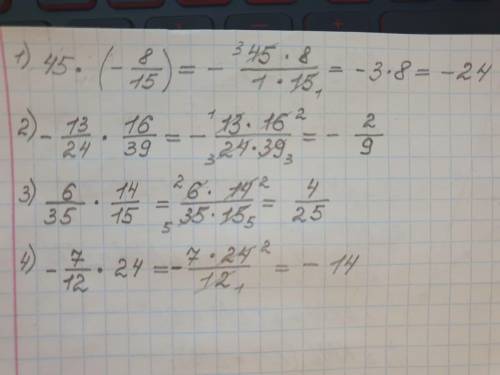 1) 45 · (- 8/15) = - ³45 · 8 / 1 · 15₁ = -3·8 = -24
2) - 13/24 · 16/39 = - ¹13 · 16² / ₃24 · 39₃ = - 2/9
3) 6/35 · 14/15 = ²6 · 14² / ₅35 · 15₅ = 4/25
4) - 7/12 · 24 = - 7 · 24² / 12₁ = - 14